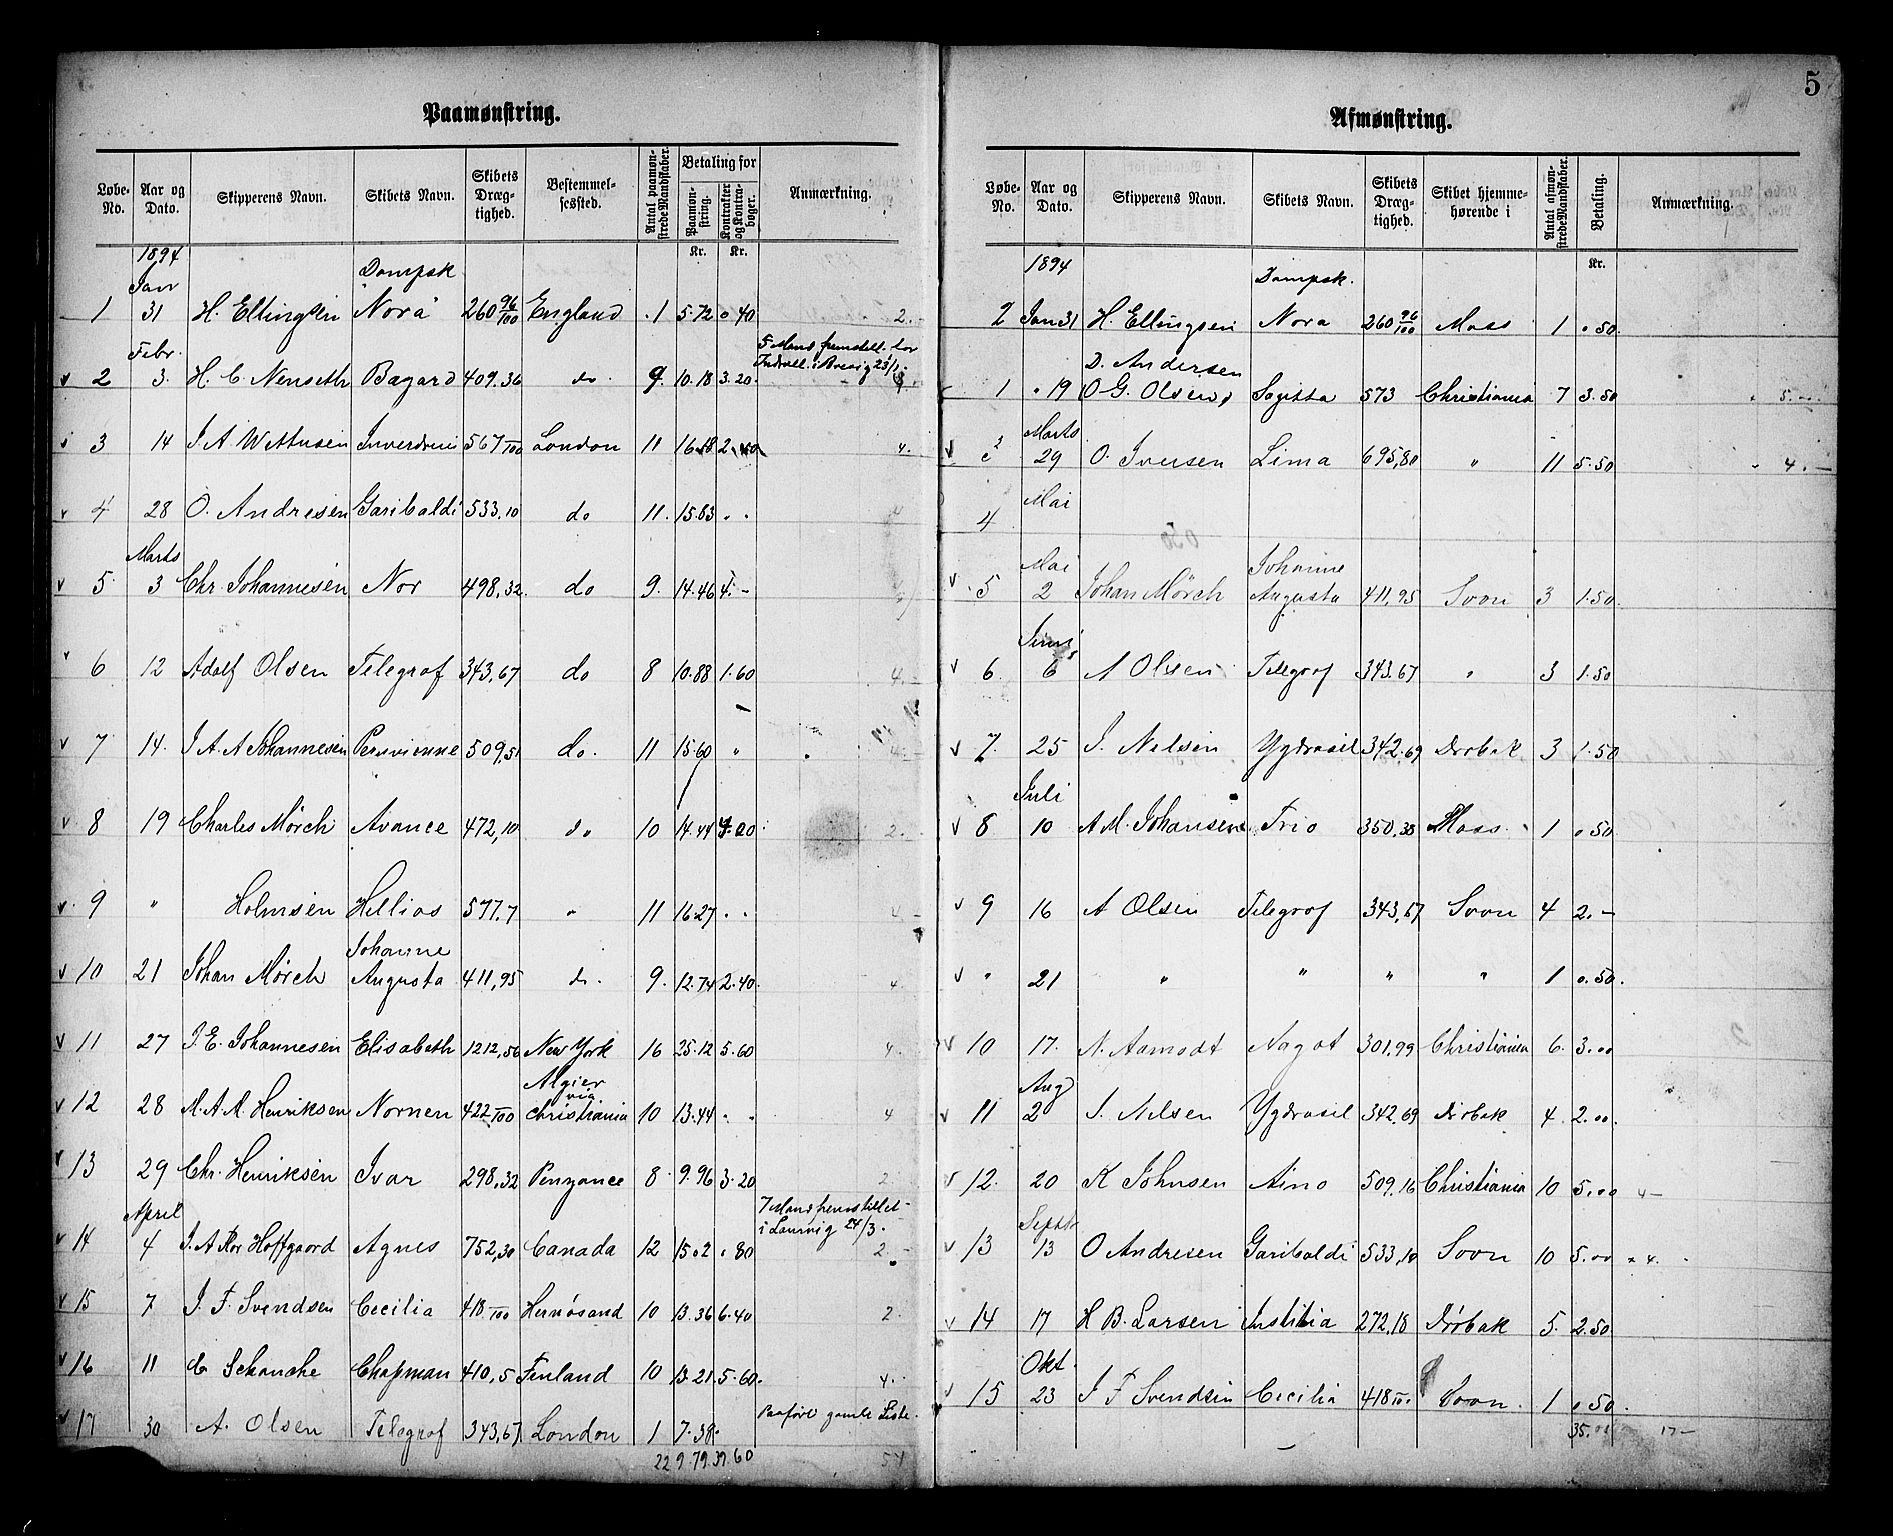 5
Paamønstring.
Løbe-No. | Aar og Dato. | Skipperens Navn. | Skibets Navn. | Skibets Dræg-tighed. | Bestemmel-sessted. | Antal paamøn-strede Mandskaber. | Betaling for Paamøn-string. | Kontrakter og Kontra-bøger. | Anmærkning.
Kr. Kr.
1894
Jan Dampsk
1 31 H. Ellingsen "Nora" 260 96/100 England 1 5.72 0.40 2.
Febr. 5 Mand fremstill. for
2 3. H. C. Nenseth Bagard 409.36 do. 9. 10.18 3.20. Indrull. i Brevig 23/1
3 14 J. A Wettusen 567/100 London 11 16.18 2.40 4.
4 28 O. Andresen Garibaldi 533.10 do 11. 15.83 " "
Marts
5 3 Chr. Johannesen Nor 498,32. do 9. 14.46 4.-
6 12 Adolf Olsen Telegraf 343,67 do 8 10.88 1.60 4.-
7 14. J. A. A Johannesen Peruvienne 509,51 do. 11 15.60 " 4.-
8 19 Charles Mørch Avance 472,10 do 10 14.44 4.20 2.
9 " Holmsen Hellios 577.7 " 11 16.27 " " 4.-
Johanne
10 21 Johan Mørch Augusta 411,95 do. 9. 12.74 2.40. 4
11 27 J. E. Johannesen Elisabeth 1212,56 New York 16 25.12 5.60 4.
Algier
via
12 28 M. A. M. Henriksen Nornen 422/100 Christiania 10 13.44 " " 4
13 29 Chr. Henriksen Ivar 298,32 Penzance 8 9.96 3.20 2.
April 7 Mand fremstillet
i Laurvig 24/3.
14 4 J. A Kor Hoffgaard Agnes 752,30 Canada 12 15.02 0.80 2.-
15 7 J. F. Svendsen Cecilia 418/100 Hernösand 10 13.36 6.40 2.
16 11 C Schanche Chapman 410,5 Finland 10 13.21 5.60. 4.
17 30 A. Olsen Telegraf 343,67 London 1 7.38. Paaført gamle Liste.
229.79. 39.60 54
Afmønstring.
Løbe-No. | Aar og Dato. | Skipperens Navn. | Skibets Navn. | Skibets Dræg-tighed. | Skibet hjemme-hørende i | Antal afmøn-strede Mandskaber. | Betaling. | Anmærkning.
Kr.
1894 Dampsk.
2 Jan 31 H. Ellingsen Nora 260 96/100 Moss 1 0.50
D. Andersen
1 " 19 O G. Olsen, Sagitta 573 Christiania 7 3.50 5.-
Marts
3 29 O. Iversen Lima 695,80 " 11 5.50 4.-
Mai
4
Mai Johanne
5 2 Johan Mørch Augusta 411,95 Soon 3 1.50.
Juni
6 6 A Olsen Telegraf 343.67 " 3 1.50
7. 25 J. Nelsen Ygdrasil 342.69 Drøbak 3 1.50
Juli
8 10 A. M. Johansen Trio 350,38 Moss. 1 0.50
9 16 A Olsen Telegraf 343,67 Soon 4 2.-
" 21 " " " " 1 0.50.
10 17. N. Aamodt Nagot 301,99 Christiania 6. 3.00
Aug
11 2 J. Nelsen Ygdrasil 342.69 Drøbak 4 2.00.
12. 20 K Johnsen Aino 509.16 Christiania 10 5.00 4-
Septbr
13 13 O Andresen Garibaldi 533,10 Soon 10 5.00 4.
14 17 H B. Larsen Justitia 272,18 Drøbak 5. 2.50
Okt.
15 23 J F Svendsen Cecilia 418/100 Soon. 1 0.50.
35.00 17-